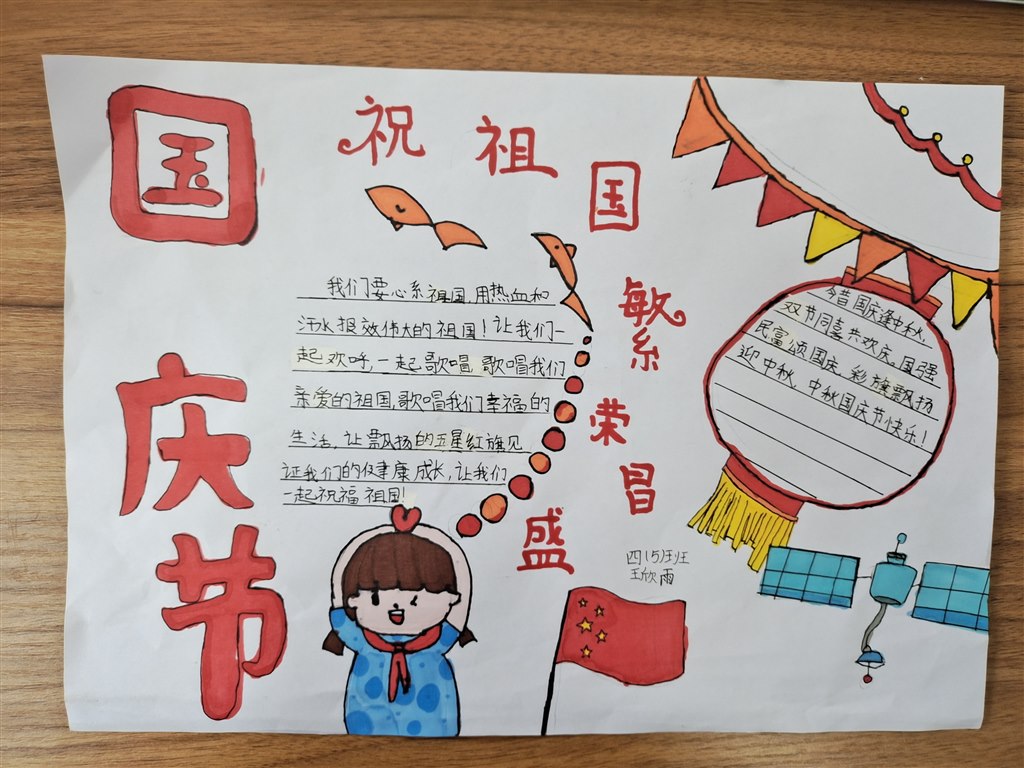 国庆节
祝祖国繁荣昌盛
我们要心系祖国,用热血和
汗水报效伟大的祖国!让我们一
起欢呼,一起歌唱,歌唱我们
亲爱的祖国,歌唱我们幸福的
生活,让飘扬的五星红旗见
证我们的健康成长,让我们
一起祝福祖国!
今昔国庆逢中秋,
双节同喜共欢庆,国强
民富颂国庆,彩旗飘扬
迎中秋,中秋国庆节快乐!
四(5)班
王欣雨